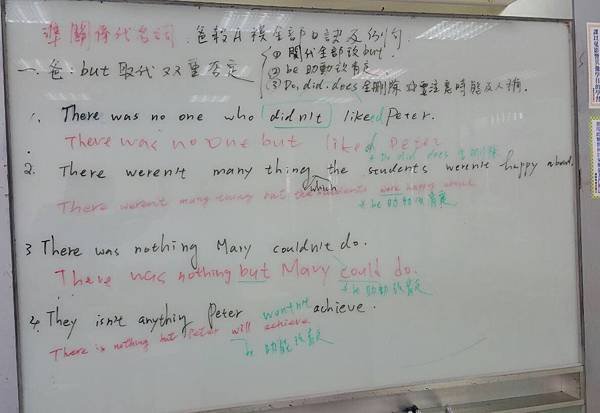 準關係代名詞
一、爸:but取代双重否定
(1) 關代全部改but.
(2) be 助動改肯定
(3) Do, did, does 全刪除 並要注意時態及人稱.
1. There was no one who didn't likeed Peter.
There was no one but liked Peter
* Do did does 全刪除
2. There weren't many thing the students weren't happy about.
which
There weren't many thing but the students were happy about
* be 助動改肯定
3 There was nothing Mary couldn't do.
There was nothing but Mary could do.
* be 助動改肯定
4. They isn't anything Peter won't achieve.
There is nothing but Peter will achieve
be 助動改肯定